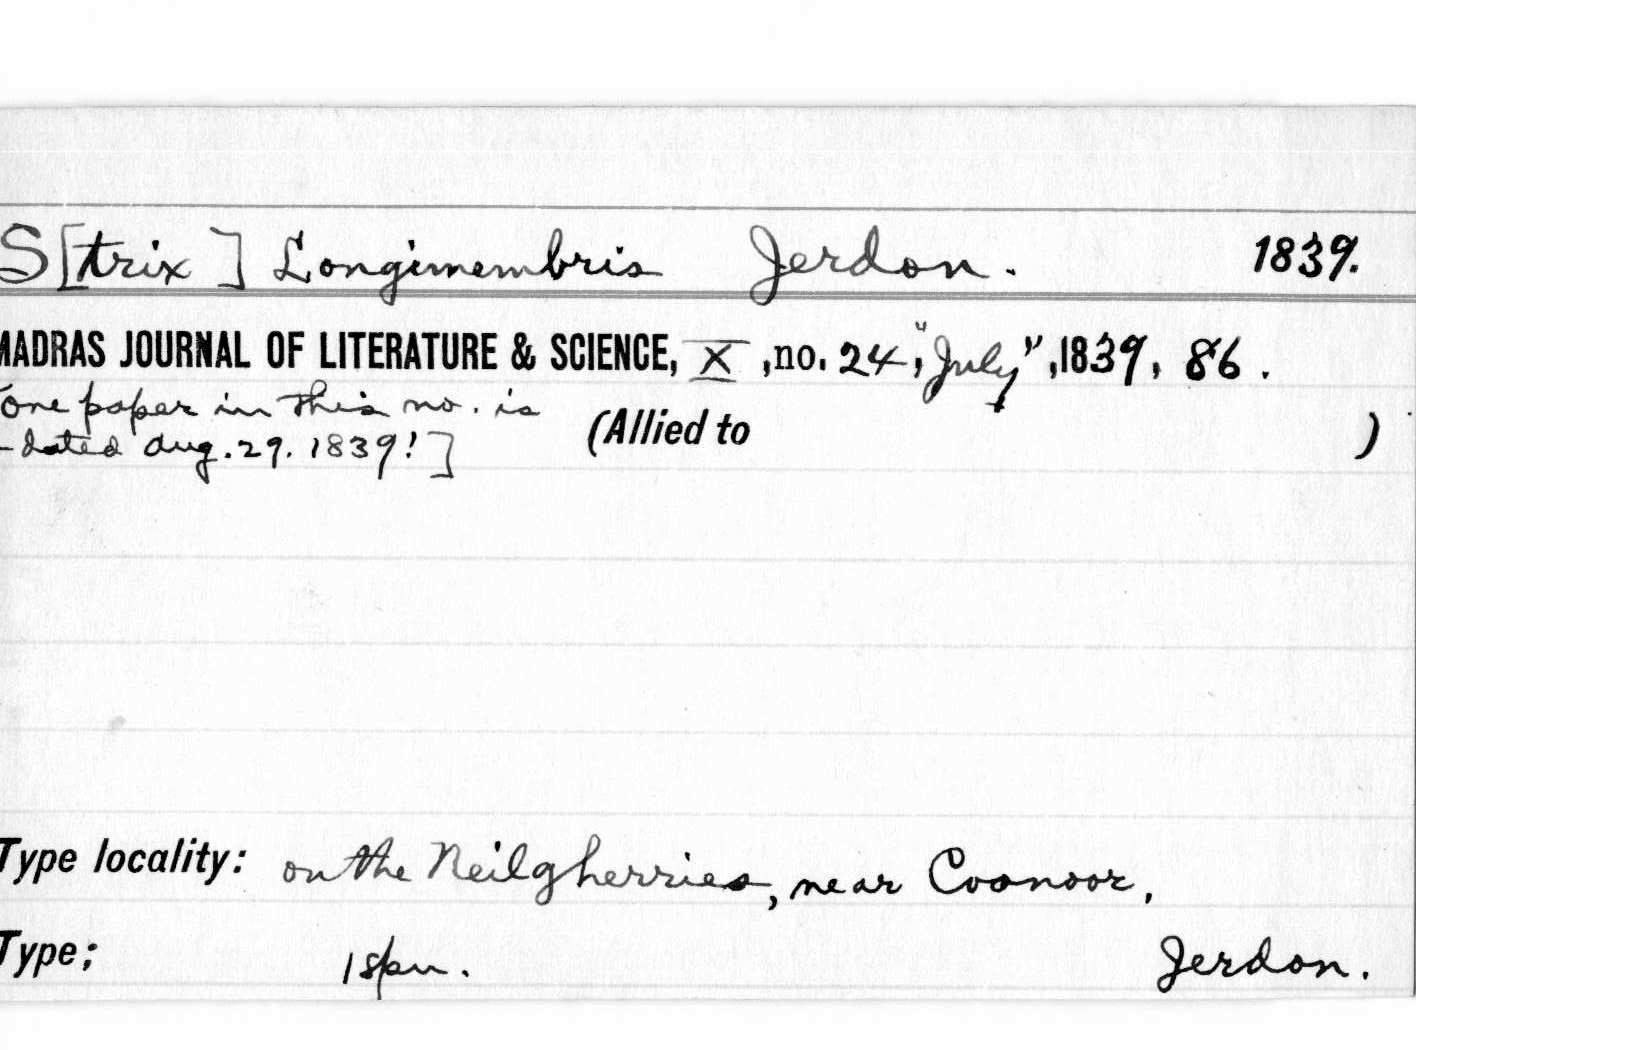 S[trix] Longimembris Jerdon. 1839.
MADRAS JOURNAL OF LITERATURE & SCIENCE, X, no. 24, "July", 1839, 86.
[one paper in this no. is (Allied to )
-dated Aug. 29. 1839!]
Type locality: on the Neilgherries, near Coonoor,
Type; 1 spm. Jerdon.